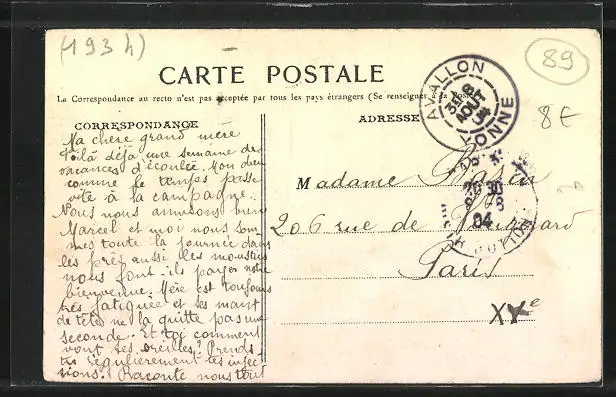 (1934)
89
8€
CARTE POSTALE
La Correspondance au recto n'est pas acceptée par tous les pays étrangers (Se renseigner à la Poste)
CORRESPONDANCE
Ma chère grand mère
Voilà déjà une semaine de
vacances d'écoulée. Mon dieu
comme le temps passe
vite à la campagne.
Nous nous amusons bien
Marcel et moi nous som-
mes toute la journée dans
les prés aussi les moustiques
nous font-ils payer notre
bienvenue. Mère est toujours
très fatiguée et ses maux
de tête ne la quitte pas une
seconde. Et toi comment
vont tes oreilles? Prends-
tu régulièrement tes injec-
sions. Raconte nous tout
ADRESSE
Madame
206 rue de
Paris
XXe
AVALLON
8
AOUT
YONNE
20 30
8 8
04